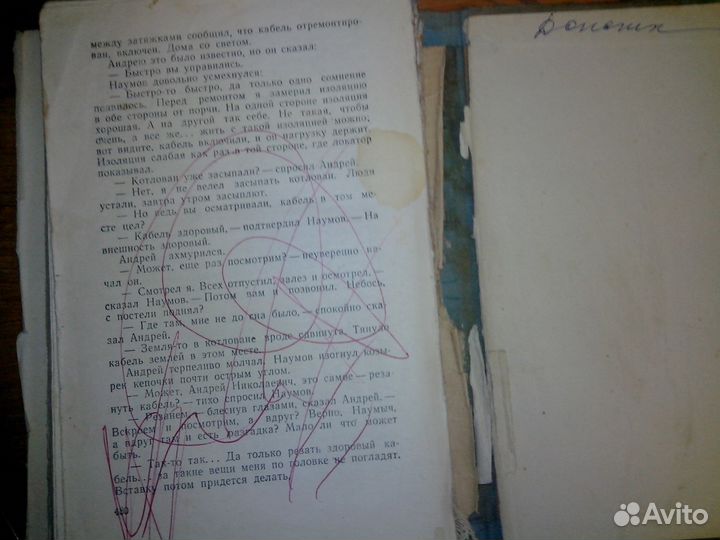 между затяжками сообщил, что кабель отремонтиро-
ван, включен. Дома со светом.
Андрею это было известно, но он сказал:
— Быстро вы управились.
Наумов довольно усмехнулся:
— Быстро-то быстро, да только одно сомнение
появилось. Перед ремонтом я замерил изоляцию
в обе стороны от порчи. На одной стороне изоляция
хорошая. А на другой так себе. Не такая, чтобы
очень, а все же... жить с такой изоляцией можно;
вот видите, кабель включили, и он нагрузку держит.
Изоляция слабая как раз в той стороне, где локатор
показывал.
— Котлован уже засыпали? — спросил Андрей.
— Нет, я не велел засыпать котлован. Люди
устали, завтра утром засыплют.
— Но ведь вы осматривали, кабель в том ме-
сте цел?
— Кабель здоровый, — подтвердил Наумов. — На
внешность здоровый.
Андрей нахмурился.
— Может, еще раз посмотрим? — неуверенно на-
чал он.
— Смотрел я. Всех отпустил, залез и осмотрел, —
сказал Наумов. — Потом вам и позвонил. Небось,
с постели поднял?
— Где там, мне не до сна было, — спокойно ска-
зал Андрей.
— Земля-то в котловане вроде сдвинута. Тянуло
кабель землей в этом месте.
Андрей терпеливо молчал. Наумов изогнул козы-
рек кепочки почти острым углом.
— Может, Андрей Николаевич, это самое — реза-
нуть кабель? — тихо спросил Наумов.
— Резанем, — блеснув глазами, сказал Андрей. —
Вскроем и посмотрим, а вдруг? Верно, Наумыч,
а вдруг там и есть разгадка? Мало ли что может
быть.
— Так-то так... Да только резать здоровый ка-
бель... за такие вещи меня по головке не погладят.
Вставку потом придется делать.
Avito